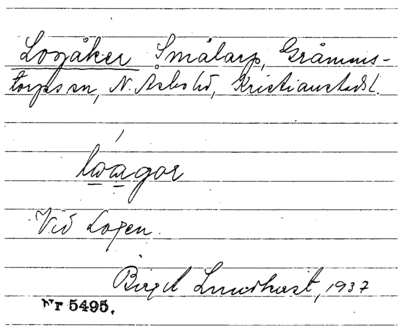 Logåker Smålarp, Gråmans-
torps sn, N. Åsbo hd, Kristianstads l.
lωagor
Vid Logen.
Birgit Lundkvist, 1937
Nr 5495.